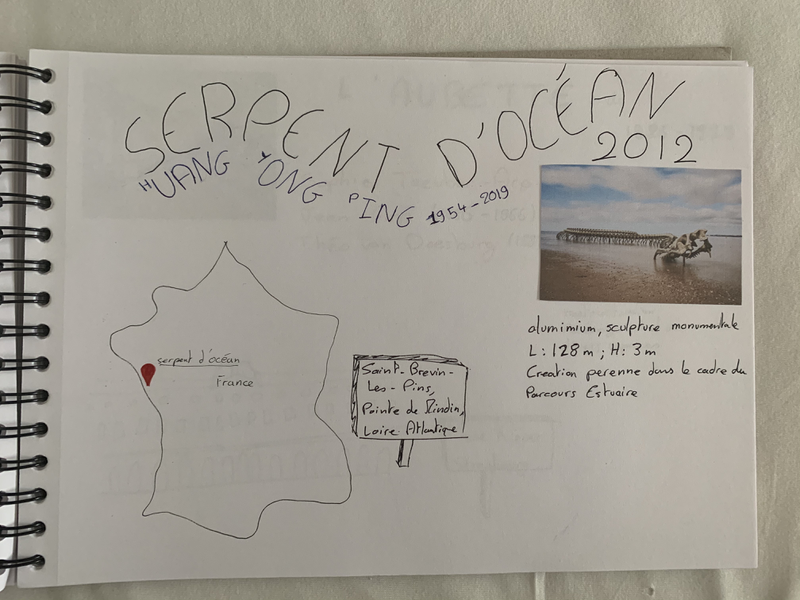 SERPENT D'OCÉAN
2012
HUANG YONG PING 1954-2019
serpent d'océan
France
Saint-Brevin-
Les-Pins,
Pointe de Mindin,
Loire Atlantique
alumimium, sculpture monumentale
L: 128 m ; H: 3 m
Creation perenne dans le cadre du
Parcours Estuaire
L'AUBETTE